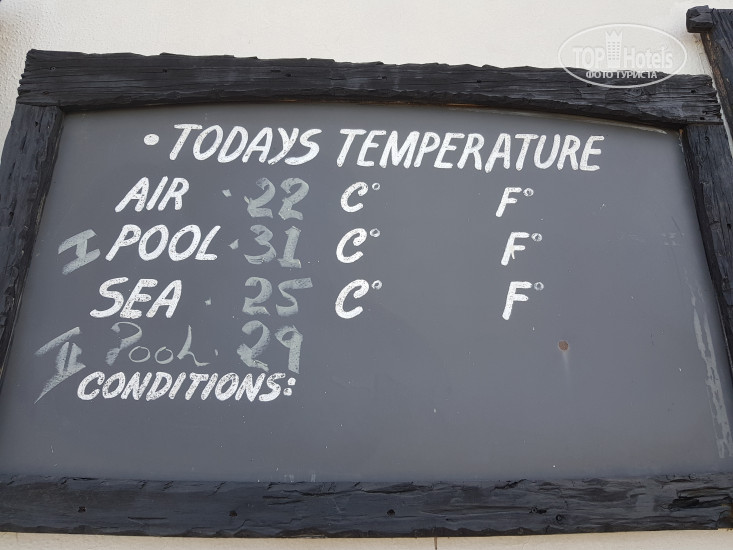 TOP Hotels
ФОТО ТУРИСТА
• TODAYS TEMPERATURE
AIR 22 C° F°
I POOL 31 C° F°
SEA 25 C° F°
II Pool. 29
CONDITIONS: